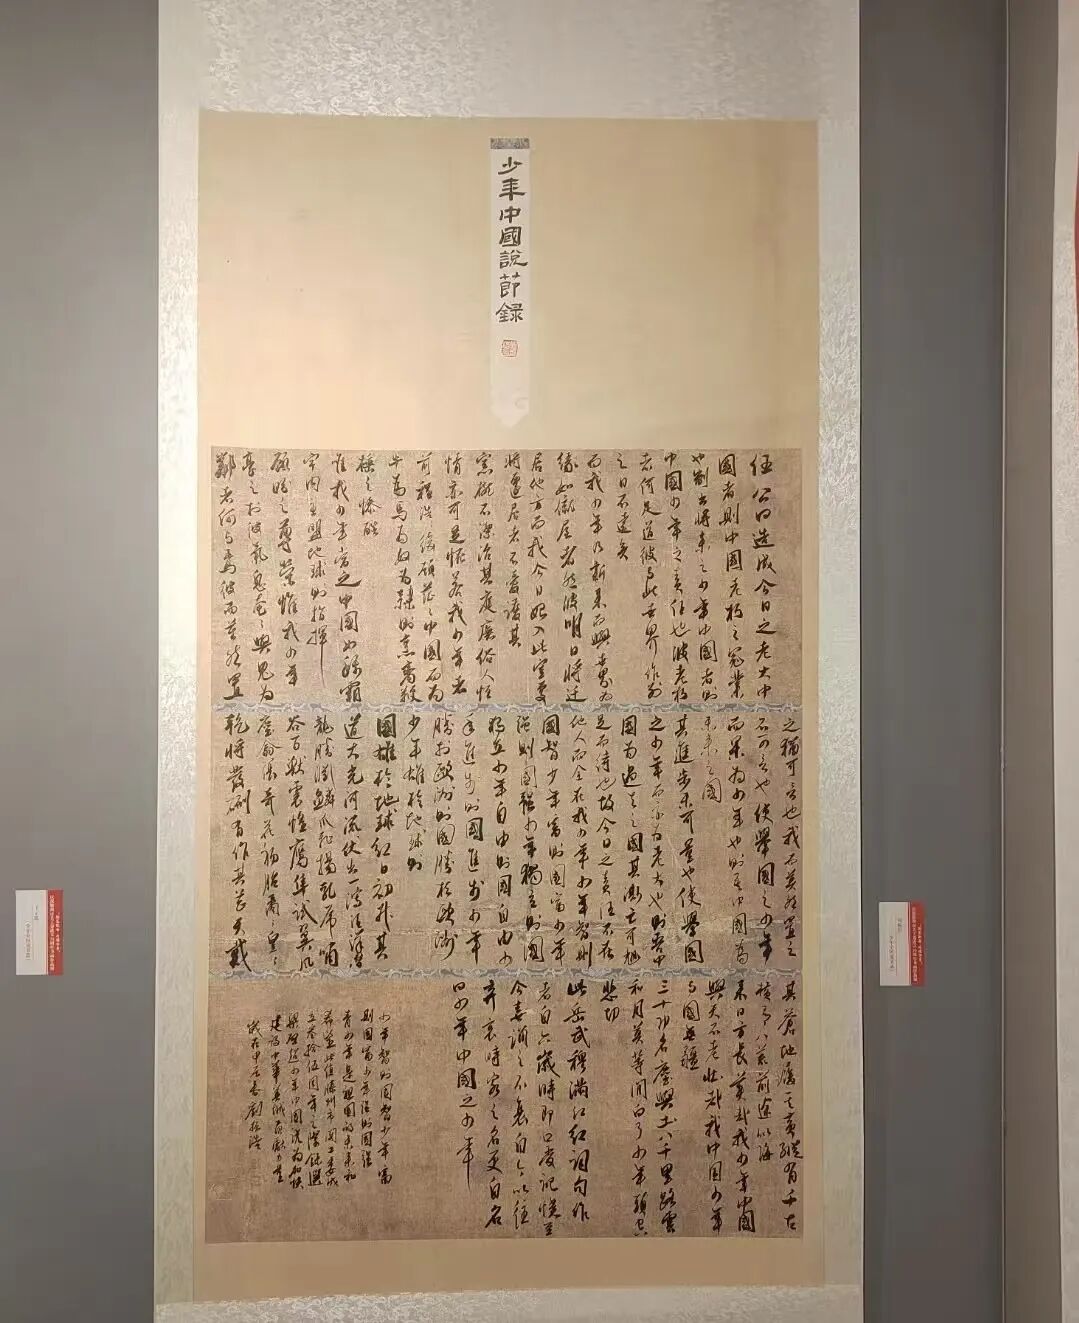 少年中國說節錄
任公曰造成今日之老大中
國者則中國老朽之冤業
也製出將來之少年中國者則
中國少年之責任也彼老朽
者何足道彼與此世界作別
之日不遠矣
而我少年乃新來而與世界為
緣如僦屋者然彼明日將遷
居他方而我今日始入此室處
將遷居者不愛護其
窗櫳不潔治其庭廡俗人恒
情亦可足怪若我少年者
前程浩浩後顧茫茫中國而為
牛為馬為奴為隸則烹臠
棰之慘酷
惟我少年當之中國如稱霸
宇內主盟地球則指揮
顧盼之尊榮惟我少年
享之於彼氣息奄奄與鬼為
鄰者何與焉彼而漠然置
之猶可言也我而漠然置之
不可言也使舉國之少年
而果為少年也則吾中國為
未來之國
其進步未可量也使舉國
之少年而亦為老大也則吾中
國為過去之國其澌亡可翹
足而待也故今日之責任不在
他人而全在我少年少年智則
國智少年富則國富少年
強則國強少年獨立則國
獨立少年自由則國自由少
年進步則國進步少年
勝於歐洲則國勝於歐洲
少年雄於地球則
國雄於地球紅日初升其
道大光河流伏出一瀉汪洋潛
龍騰淵鱗爪飛揚乳虎嘯
谷百獸震惶鷹隼試翼風
塵翕張奇花初胎矞矞皇皇
乾將發硎有作其芒天戴
其蒼地履其黃縱有千古
橫有八荒前途似海
來日方長美哉我少年中國
與天不老壯哉我中國少年
與國無疆
三十功名塵與土八千里路雲
和月莫等閒白了少年頭空
悲切
此岳武穆滿江紅詞句作
者自六歲時即口受記憶至
今喜誦之不衰自今以往
棄哀時客之名更自名
曰少年中國之少年
少年智則國智少年富
則國富少年強則國強
青少年是祖國的未來和